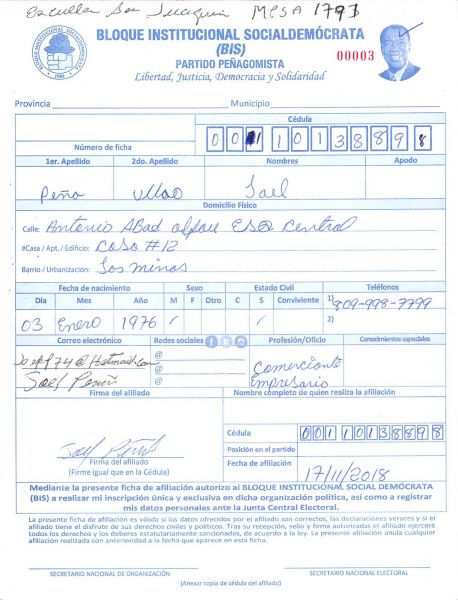 Escuela San Joaquin MESA 1793
BLOQUE INSTITUCIONAL SOCIALDEMÓCRATA
(BIS)
PARTIDO PEÑAGOMISTA
Libertad, Justicia, Democracia y Solidaridad
00003
Provincia Municipio
Cédula
Número de ficha 001 1013889 8
1er. Apellido 2do. Apellido Nombres Apodo
Peña Ulloa Sael
Domicilio Físico
Calle: Antonio Abad alfau ESQ Central
#Casa / Apt. / Edificio: Casa #12
Barrio / Urbanización: Los minas
Fecha de nacimiento Sexo Estado Civil Teléfonos
Día Mes Año M F Otro C S Conviviente 1) 809-998-7799
03 Enero 1976 / / 2)
Correo electrónico Redes sociales Profesión/Oficio Conocimientos especiales
@Hotmail.com @ Comerciante
Sael Peña @ Empresario
@
Firma del afiliado Nombre completo de quien realiza la afiliación
Cédula 001 1013889 8
Posición en el partido
Firma del afiliado Fecha de afiliación
(Firma igual que en la Cédula) 17/11/2018
Mediante la presente ficha de afiliación autorizo al BLOQUE INSTITUCIONAL SOCIAL DEMÓCRATA
(BIS) a realizar mi inscripción única y exclusiva en dicha organización política, así como a registrar
mis datos personales ante la Junta Central Electoral.
La presente ficha de afiliación es válida si los datos ofrecidos por el afiliado son correctos, las declaraciones veraces y si el
afiliado tiene el disfrute de sus derechos civiles y políticos. Tras su recepción, sello y firma autorizadas el afiliado ejercerá
todos los derechos y los deberes estatutariamente sancionados, de acuerdo a la ley. La presente afiliación anula cualquier
afiliación realizada con anterioridad a la fecha que aparece en esta ficha.
SECRETARIO NACIONAL DE ORGANIZACIÓN SECRETARIO NACIONAL ELECTORAL
(Anexar copia de cédula del afiliado)